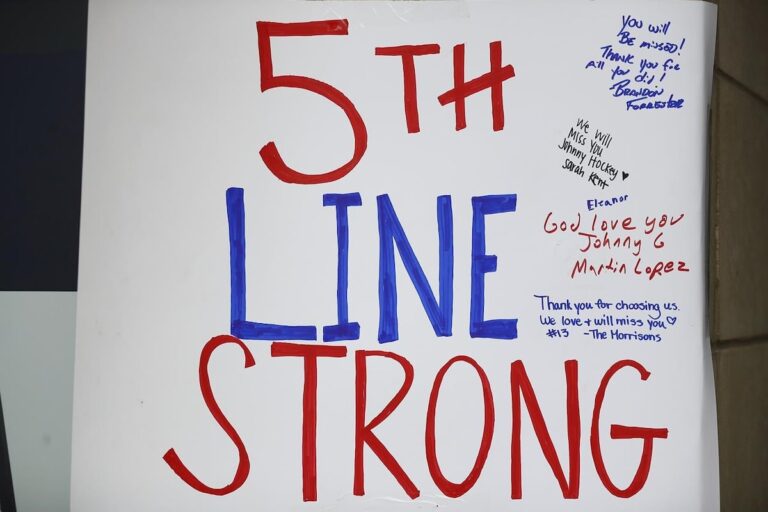 5TH
LINE
STRONG
You will
Be missed!
Thank you for
all you did!
Brandon
Forrester
We will
Miss You
Johnny Hockey ♥
Sarah Kent
Eleanor
God love you
Johnny G
Martin Lopez
Thank you for choosing us.
We love + will miss you ♡
#13 -The Morrisons